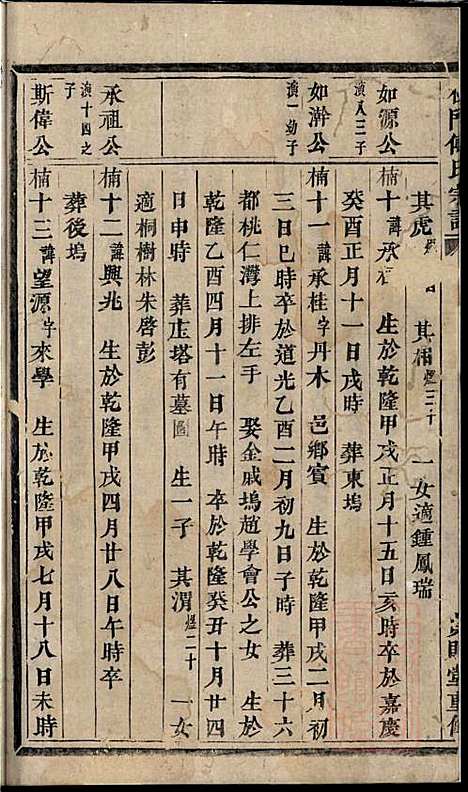 其虎 其楣 一女適鍾鳳瑞
如源公 演八三子 楠十諱承 生於乾隆甲戌正月十五日亥時卒於嘉慶
癸酉正月十一日戌時 葬東塢
如澣公 演一幼子 楠十一諱承桂字丹木 邑鄉賓 生於乾隆甲戌二月初
三日巳時卒於道光乙酉二月初九日子時 葬三十六
都桃仁灣上排左手 娶金戚塢趙學會公之女 生於
乾隆乙酉四月十一日午時 卒於乾隆癸丑十月廿四
日申時 葬庄塔有墓圖 生一子 其渭煜二十 一女
適桐樹林朱啓彭
承祖公 演十四之子 楠十二諱興兆 生於乾隆甲戌四月廿八日午時卒
葬後塢
斯偉公 楠十三諱望源字來學 生於乾隆甲戌七月十八日未時